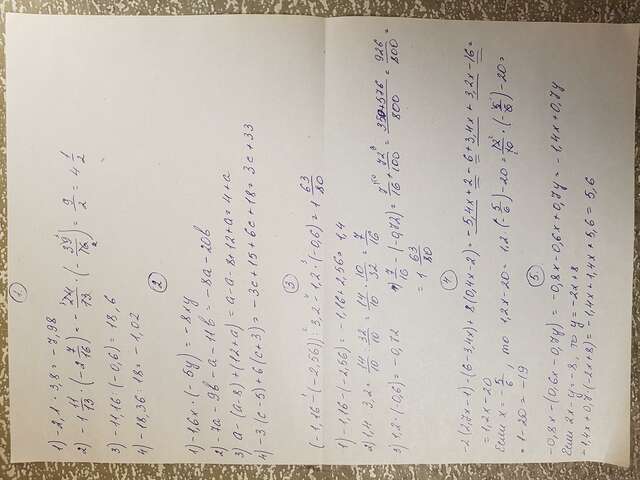 ①
1) -2,1 · 3,8 = -7,98
2) -1 11/13 · (-2 7/16) = -24/13 · (-39/16) = 9/2 = 4 1/2
3) -11,16 : (-0,6) = 18,6
4) -18,36 : 18 = -1,02
②
1) -1,6x · (-5y) = -8xy
2) -7a - 9b - a - 11b = -8a - 20b
3) a - (a - 8) + (12 + a) = a - a - 8 + 12 + a = 4 + a
4) -3 · (c - 5) + 6 (c + 3) = -3c + 15 + 6c + 18 = 3c + 33
③
(-1,16 - (-2,56)) : 3,2 - 1,2 · (-0,6) = 1 63/80
1) -1,16 - (-2,56) = -1,16 + 2,56 = 1,4
2) 1,4 : 3,2 = 14/10 : 32/10 = 14/10 · 10/32 = 7/16
3) 1,2 · (-0,6) = -0,72
7/16 - (-0,72) = 7/16 + 72/100 = 350+576/800 = 926/800 =
= 1 63/80
④
-2 (2,7x - 1) - (6 - 3,4x) + 8 (0,4x - 2) = -5,4x + 2 - 6 + 3,4x + 3,2x - 16 =
= 1,2x - 20
Если x = -5/6, то 1,2x - 20 = 1,2 · (-5/6) - 20 = 12/10 · (-5/6) - 20 =
= 1 - 20 = -19
⑤
-0,8x - (0,6x - 0,7y) = -0,8x - 0,6x + 0,7y = -1,4x + 0,7y
Если 2x - y = -8, то y = 2x + 8
-1,4x + 0,7 (2x + 8) = -1,4x + 1,4x + 5,6 = 5,6